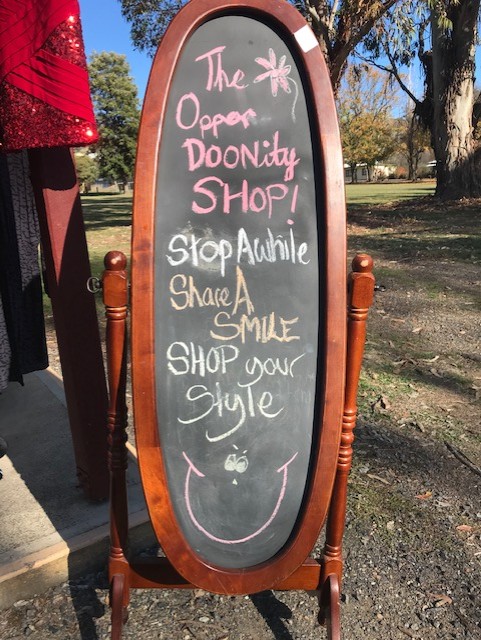 The
Opper
DOONity
SHOP!
Stop Awhile
Share A
SMILE
SHOP your
Style